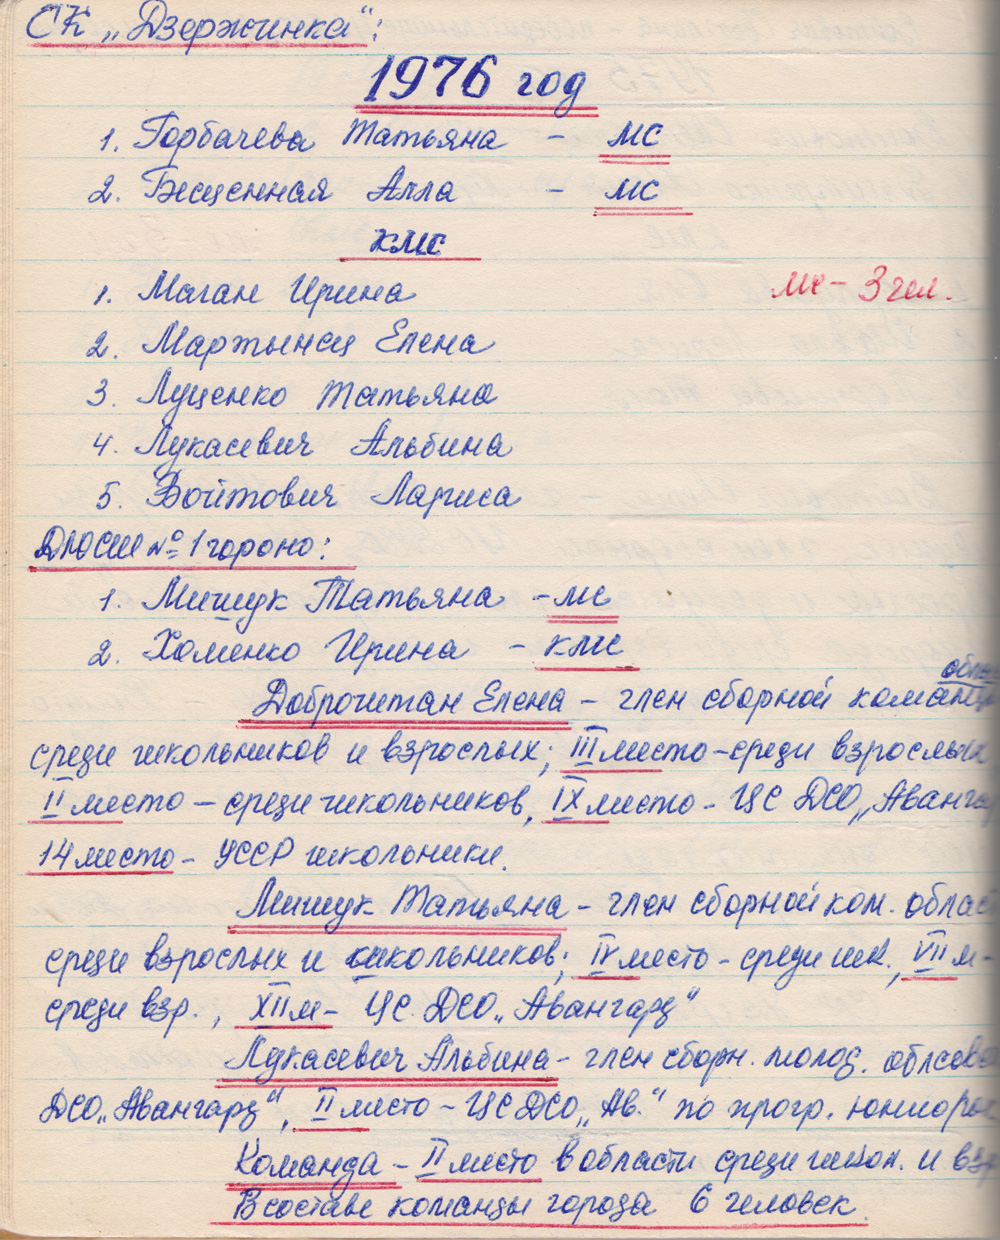 СК „Дзержинка“:
1976 год
1. Горбачева Татьяна - МС
2. Бесценная Алла - МС
КМС
1. Маган Ирина
МС - 3 чел.
2. Мартынец Елена
3. Луценко Татьяна
4. Лукасевич Альбина
5. Войтович Лариса
ДЮСШ № 1 гороно:
1. Мишук Татьяна - МС
2. Хоменко Ирина - КМС
Доброчитан Елена - член сборной
среди школьников и взрослых; III место - среди взрослых
II место - среди школьников, IX место - ЦС ДСО „
14 место - УССР школьники.
Мишук Татьяна - член сборной ком.
среди взрослых и школьников; IV место - среди шк., VII м-
среди взр., XII м- ЦС ДСО „Авангард“
Лукасевич Альбина - член сборн. молод.
ДСО „Авангард“, II место - ЦС ДСО „Ав.“ по прогр.
Команда - II место в области среди школ. и
В составе команды города 6 человек.